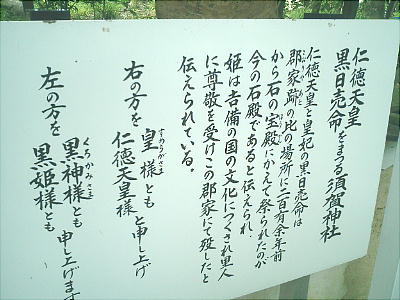 仁徳天皇
黒日売命をまつる須賀神社
仁徳天皇と皇妃の黒日売命は
郡家跡の比の場所に二百有余年前
から石の宝殿にかえて祭られたのが
今の石殿であると伝えられ、
姫は吉備の国の文化につくされ里人
に尊敬を受けこの郡家にて歿したと
伝えられている。
右の方を皇様とも
仁徳天皇様と申し上げ
左の方を黒神様とも
黒姫様とも申し上げます